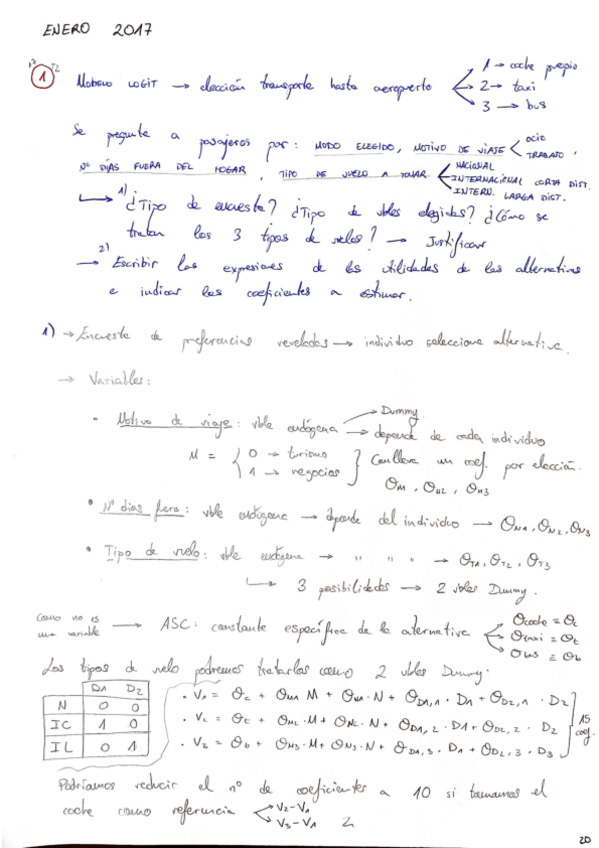 ENERO 2017
1 Modelo LOGIT → elección transporte hasta aeropuerto
1 → coche propio
2 → taxi
3 → bus
Se pregunta a pasajeros por: MODO ELEGIDO, MOTIVO DE VIAJE
OCIO
TRABAJO,
Nº DÍAS FUERA DEL HOGAR, TIPO DE VUELO A TOMAR
NACIONAL
INTERNACIONAL CORTA DIST.
INTERN. LARGA DIST.
1) ¿Tipo de encuesta? ¿Tipo de vbles elegidas? ¿Cómo se
tratan los 3 tipos de vuelos? → Justificar
2) → Escribir las expresiones de las utilidades de las alternativas
e indicar los coeficientes a estimar.
1) → Encuesta de preferencias reveladas → individuo selecciona alternativa.
→ Variables:
• Motivo de viaje: vble endógena
→ Dummy.
→ depende de cada individuo
M = { 0 → turismo
1 → negocios }
Conlleva un coef. por elección.
θM1, θM2, θM3
• Nº días fuera: vble endógena → depende del individuo → θN1, θN2, θN3
• Tipo de vuelo: vble endógena → " " " → θT1, θT2, θT3
↳ 3 posibilidades → 2 vbles Dummy.
Como no es
una variable
→ ASC: constante específica de la alternativa
θcoche ≡ θc
θtaxi ≡ θt
θbus ≡ θb
Los tipos de vuelo podremos tratarlos como 2 vbles Dummy:
D1 D2
N 0 0
IC 1 0
IL 0 1
• V1 = θc + θM1 M + θN1 · N + θD1,1 · D1 + θD2,1 · D2
• V2 = θt + θM2 · M + θN2 · N + θD1,2 · D1 + θD2,2 · D2
• V2 = θb + θM3 · M + θN3 · N + θD1,3 · D1 + θD2,3 · D3
15
coef.
Podríamos reducir el nº de coeficientes a 10 si tomamos el
coche como referencia
V2-V1
V3-V1
20